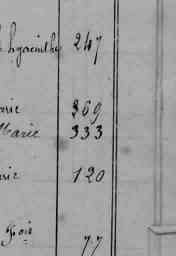 hyacinthe 247
arie 369
Marie 333
arie 120
fois
77